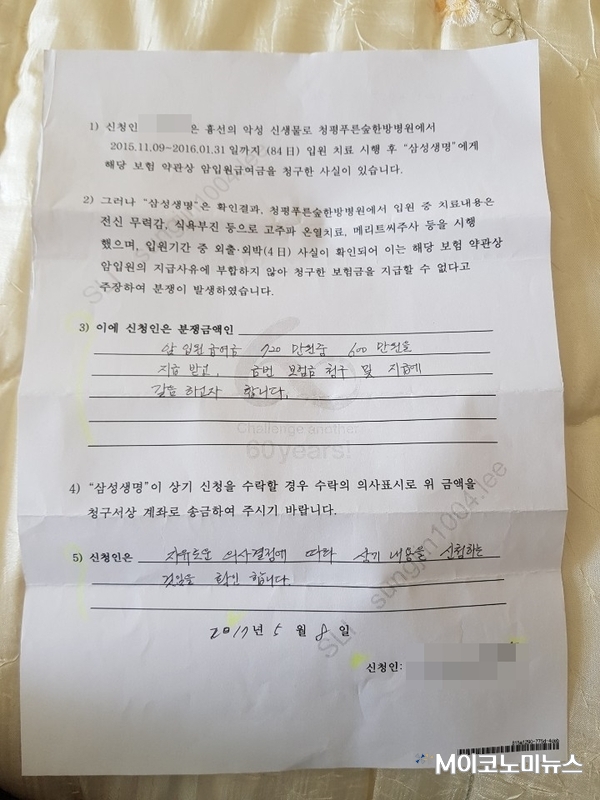 1) 신청인 은 흉선의 악성 신생물로 청평푸른숲한방병원에서
2015.11.09~2016.01.31 일까지 (84日) 입원 치료 시행 후 "삼성생명"에게
해당 보험 약관상 암입원급여금을 청구한 사실이 있습니다.
2) 그러나 "삼성생명"은 확인결과, 청평푸른숲한방병원에서 입원 중 치료내용은
전신 무력감, 식욕부진 등으로 고주파 온열치료, 메리트씨주사 등을 시행
했으며, 입원기간 중 외출·외박(4日) 사실이 확인되어 이는 해당 보험 약관상
암입원의 지급사유에 부합하지 않아 청구한 보험금을 지급할 수 없다고
주장하여 분쟁이 발생하였습니다.
3) 이에 신청인은 분쟁금액인
암 입원 급여금 920 만원중 600 만원을
지급 받고, 금번 보험금 청구 및 지급에
갈음 하고자 합니다.
Challenge another
60years!
4) "삼성생명"이 상기 신청을 수락할 경우 수락의 의사표시로 위 금액을
청구서상 계좌로 송금하여 주시기 바랍니다.
5) 신청인은 자유로운 의사결정에 따라 상기 내용을 신청하는
것임을 확인 합니다.
2017년 5 월 8 일
신청인:
SLI sungjin1004.lee
M이코노미뉴스